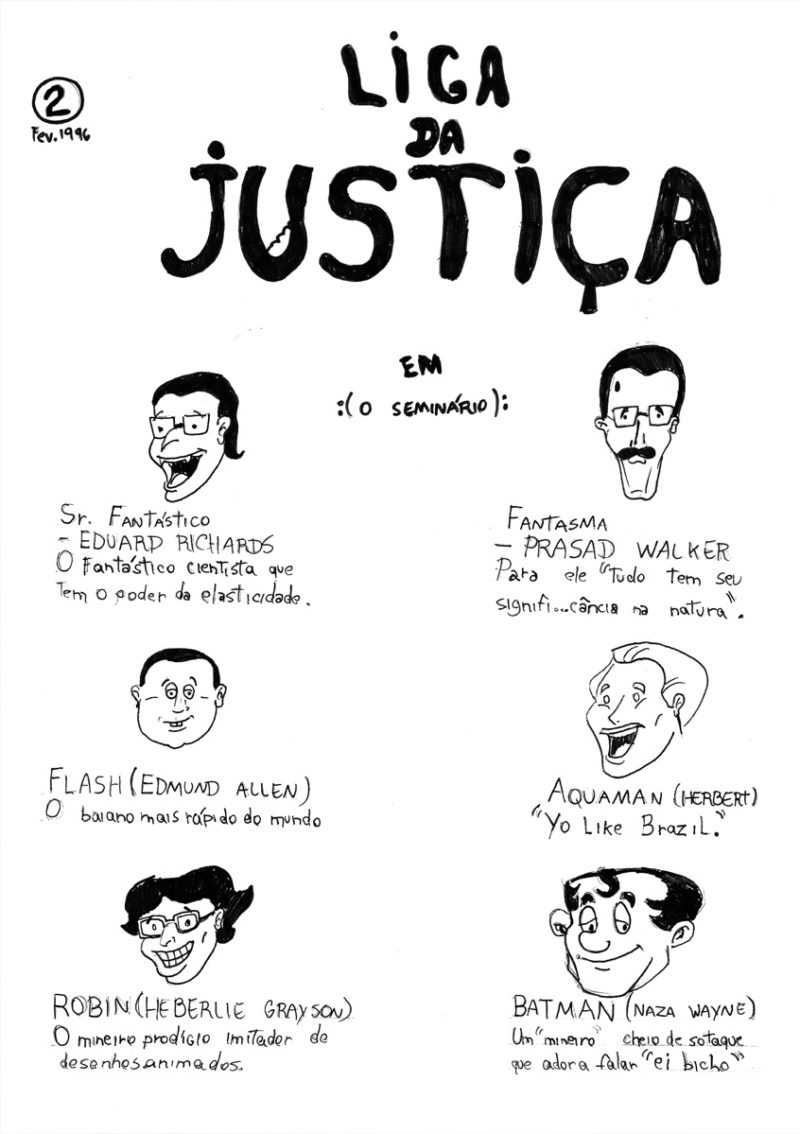 2
Fev. 1996
LIGA
DA
JUSTIÇA
EM
:(O SEMINÁRIO):
Sr. FANTÁSTICO
- EDUARD RICHARDS
O Fantástico cientista que
Tem o poder da elasticidade.
FANTASMA
- PRASAD WALKER
Para ele "Tudo tem seu
signifi...cância na natura".
FLASH (EDMUND ALLEN)
O baiano mais rápido do mundo
AQUAMAN (HERBERT)
"Yo Like Brazil."
ROBIN (HEBERLIE GRAYSON)
O mineiro prodígio imitador de
desenhos animados.
BATMAN (NAZA WAYNE)
Um "mineiro" cheio de sotaque
que adora falar "ei bicho"